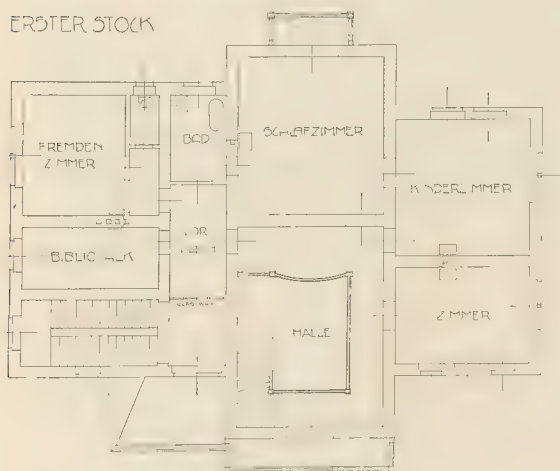 ERSTER STOCK
FREMDEN
ZIMMER
BAD
SCHLAFZIMMER
KINDERZIMMER
BIBLIOTHEK
HALLE
ZIMMER